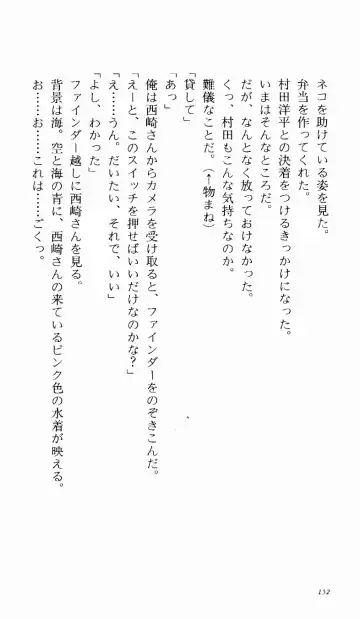 ネコを助けている姿を見た。
弁当を作ってくれた。
村田洋平との決着をつけるきっかけになった。
いまはそんなところだ。
だが、なんとなく放っておけなかった。
くっ、村田もこんな気持ちなのか。
難儀なことだ。(↑物まね)
「貸して」
「あっ」
俺は西崎さんからカメラを受け取ると、ファインダーをのぞきこんだ。
「えーと、このスイッチを押せばいいだけなのかな?」
「え……うん。だいたい、それで、いい」
「よし、わかった」
ファインダー越しに西崎さんを見る。
背景は海。空と海の青に、西崎さんの来ているピンク色の水着が映える。
お……お……これは……ごくっ。
152